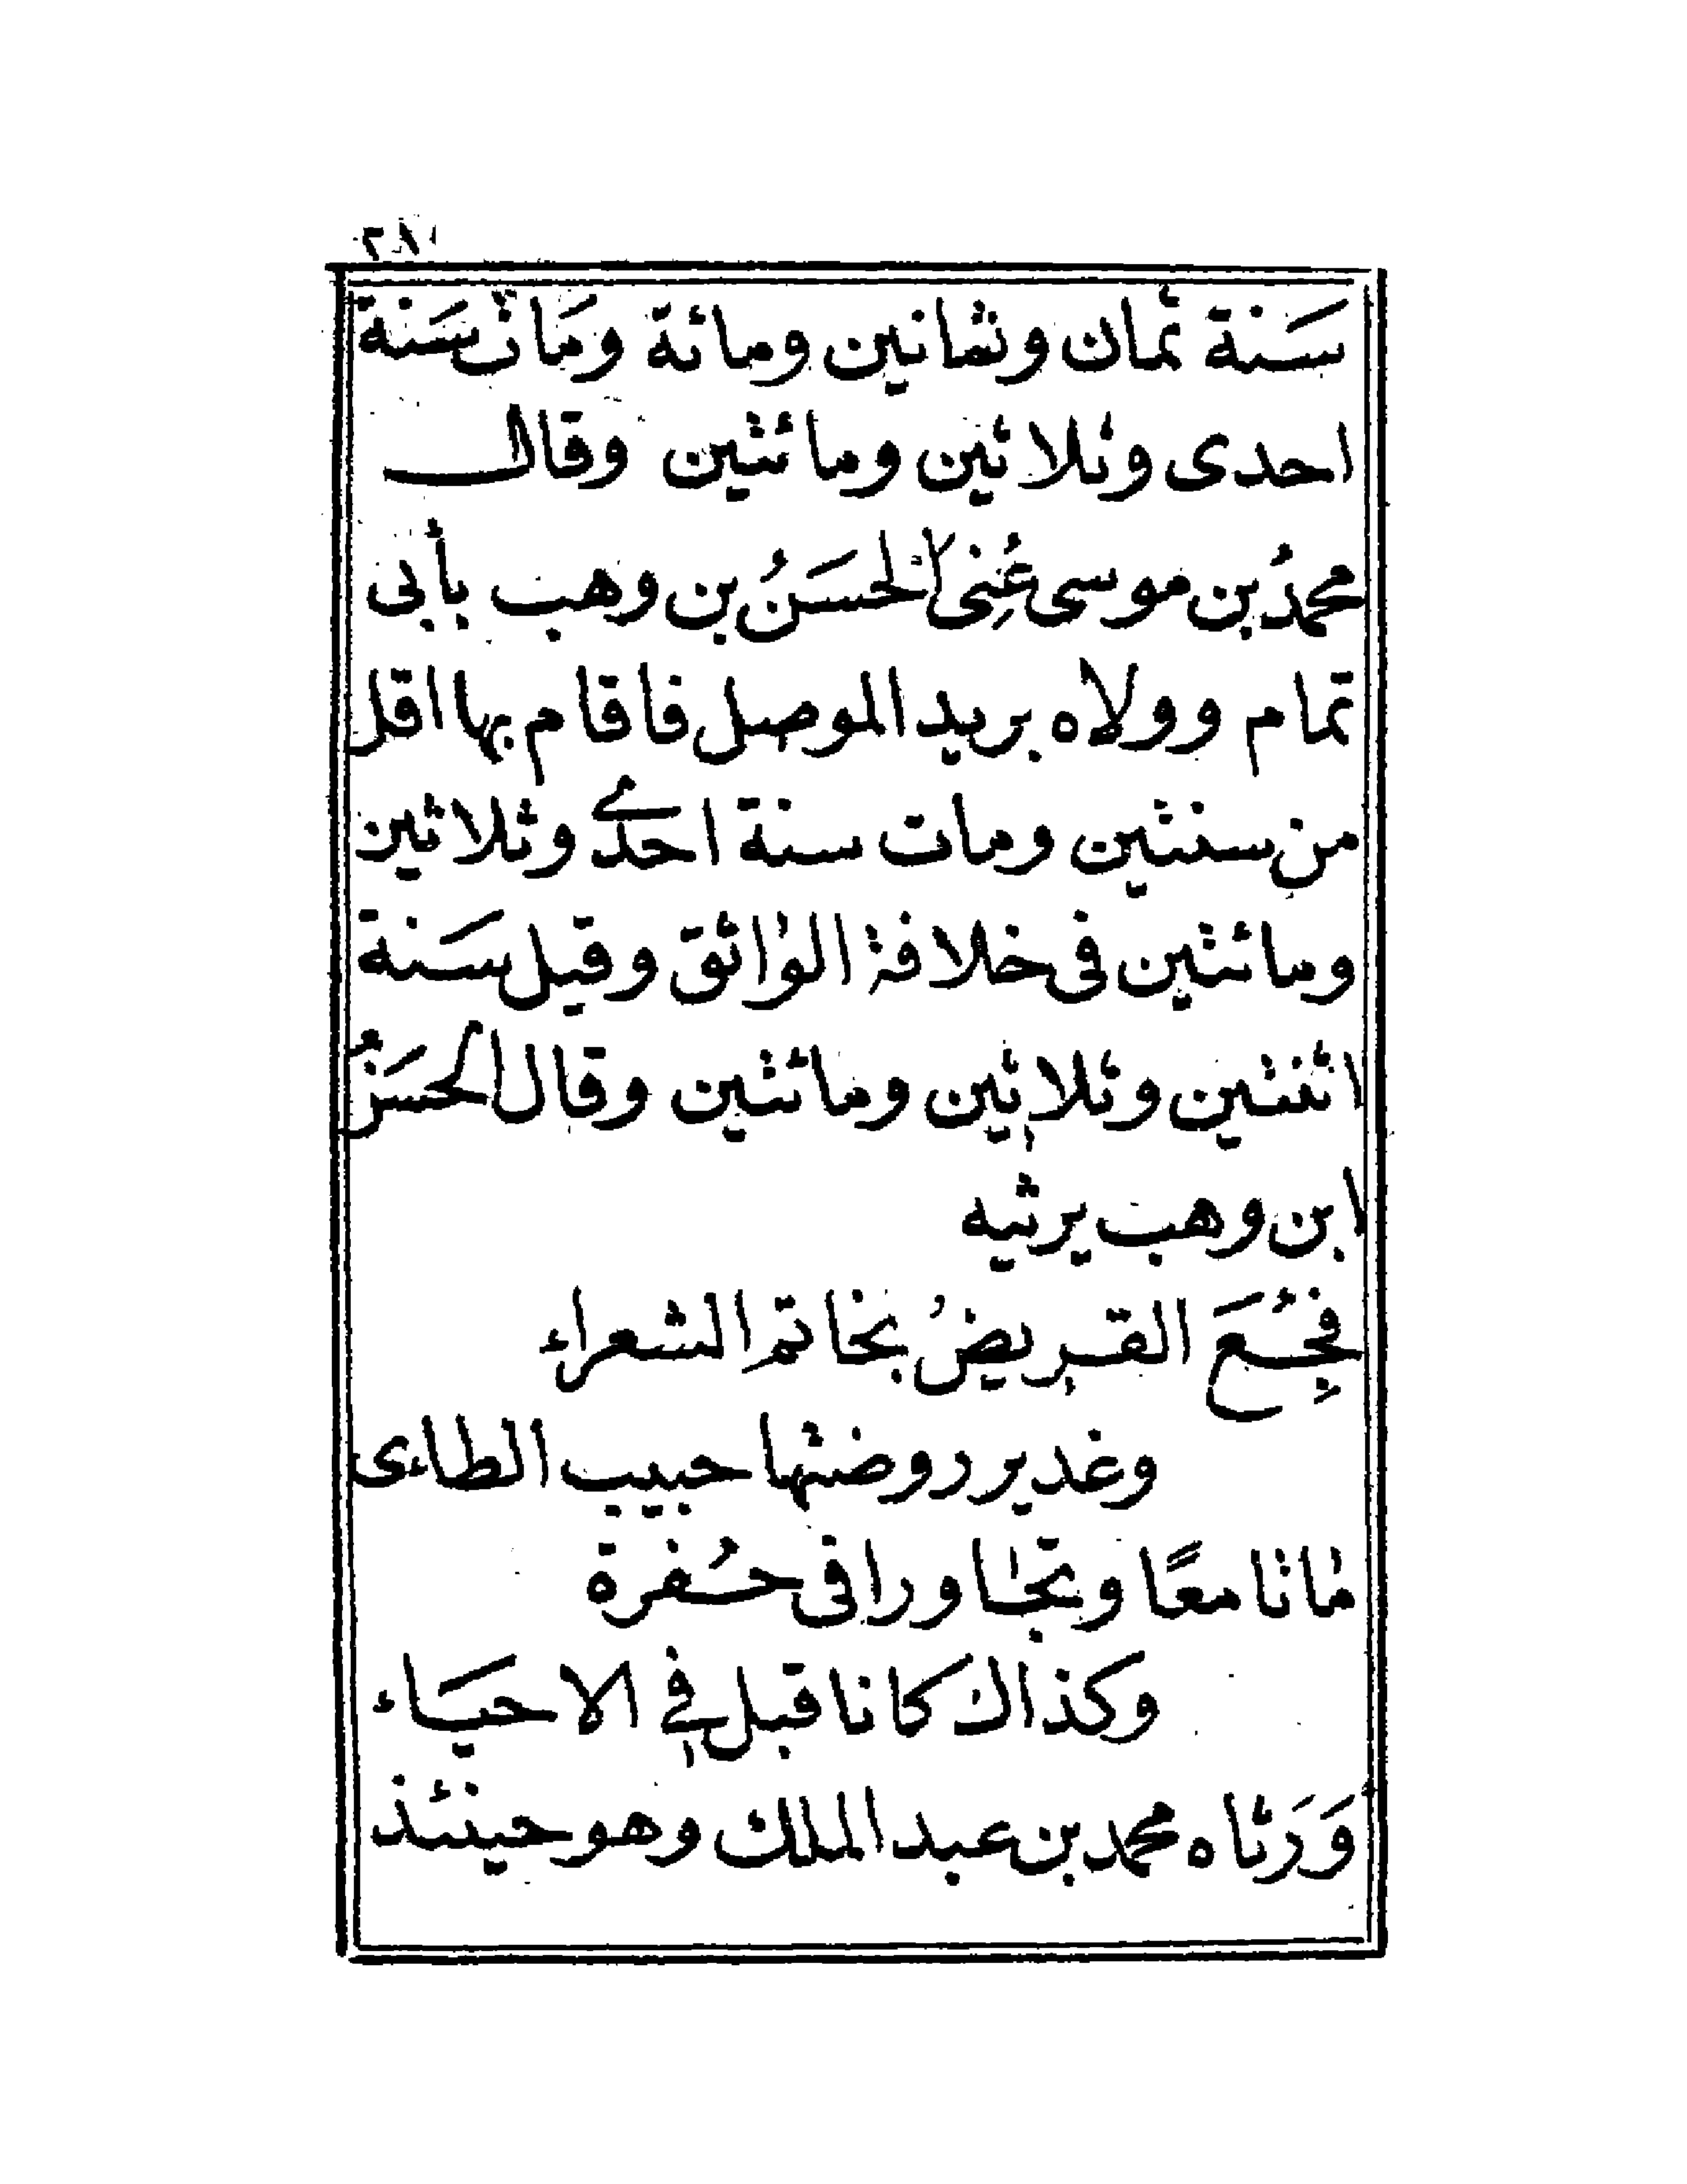 سَنة ثمان وثمانين ومائة ومَات سَنة
احدى وثلاثين ومائتين وقال
محمدُ بن موسى عُنِىَ الحسَنُ بن وهب بأبى
تمام وولاه بريد الموصل فاقام بها اقل
من سنتين ومات سنة احدى وثلاثين
ومائتين فى خلافة الواثق وقيل سَنة
اثنتين وثلاثين ومائتين وقال الحسَنُ
ابن وهب يرثيه
فجِعَ القريضُ بخاتم الشعراء
وغدير روضتها حبيب الطاءى
ماتا معًا وتجاورا فى حُفرة
وكذاك كانا قبل فى الاحيَاء
وَرَثاه محمد بن عبد الملك وهو حينئذ